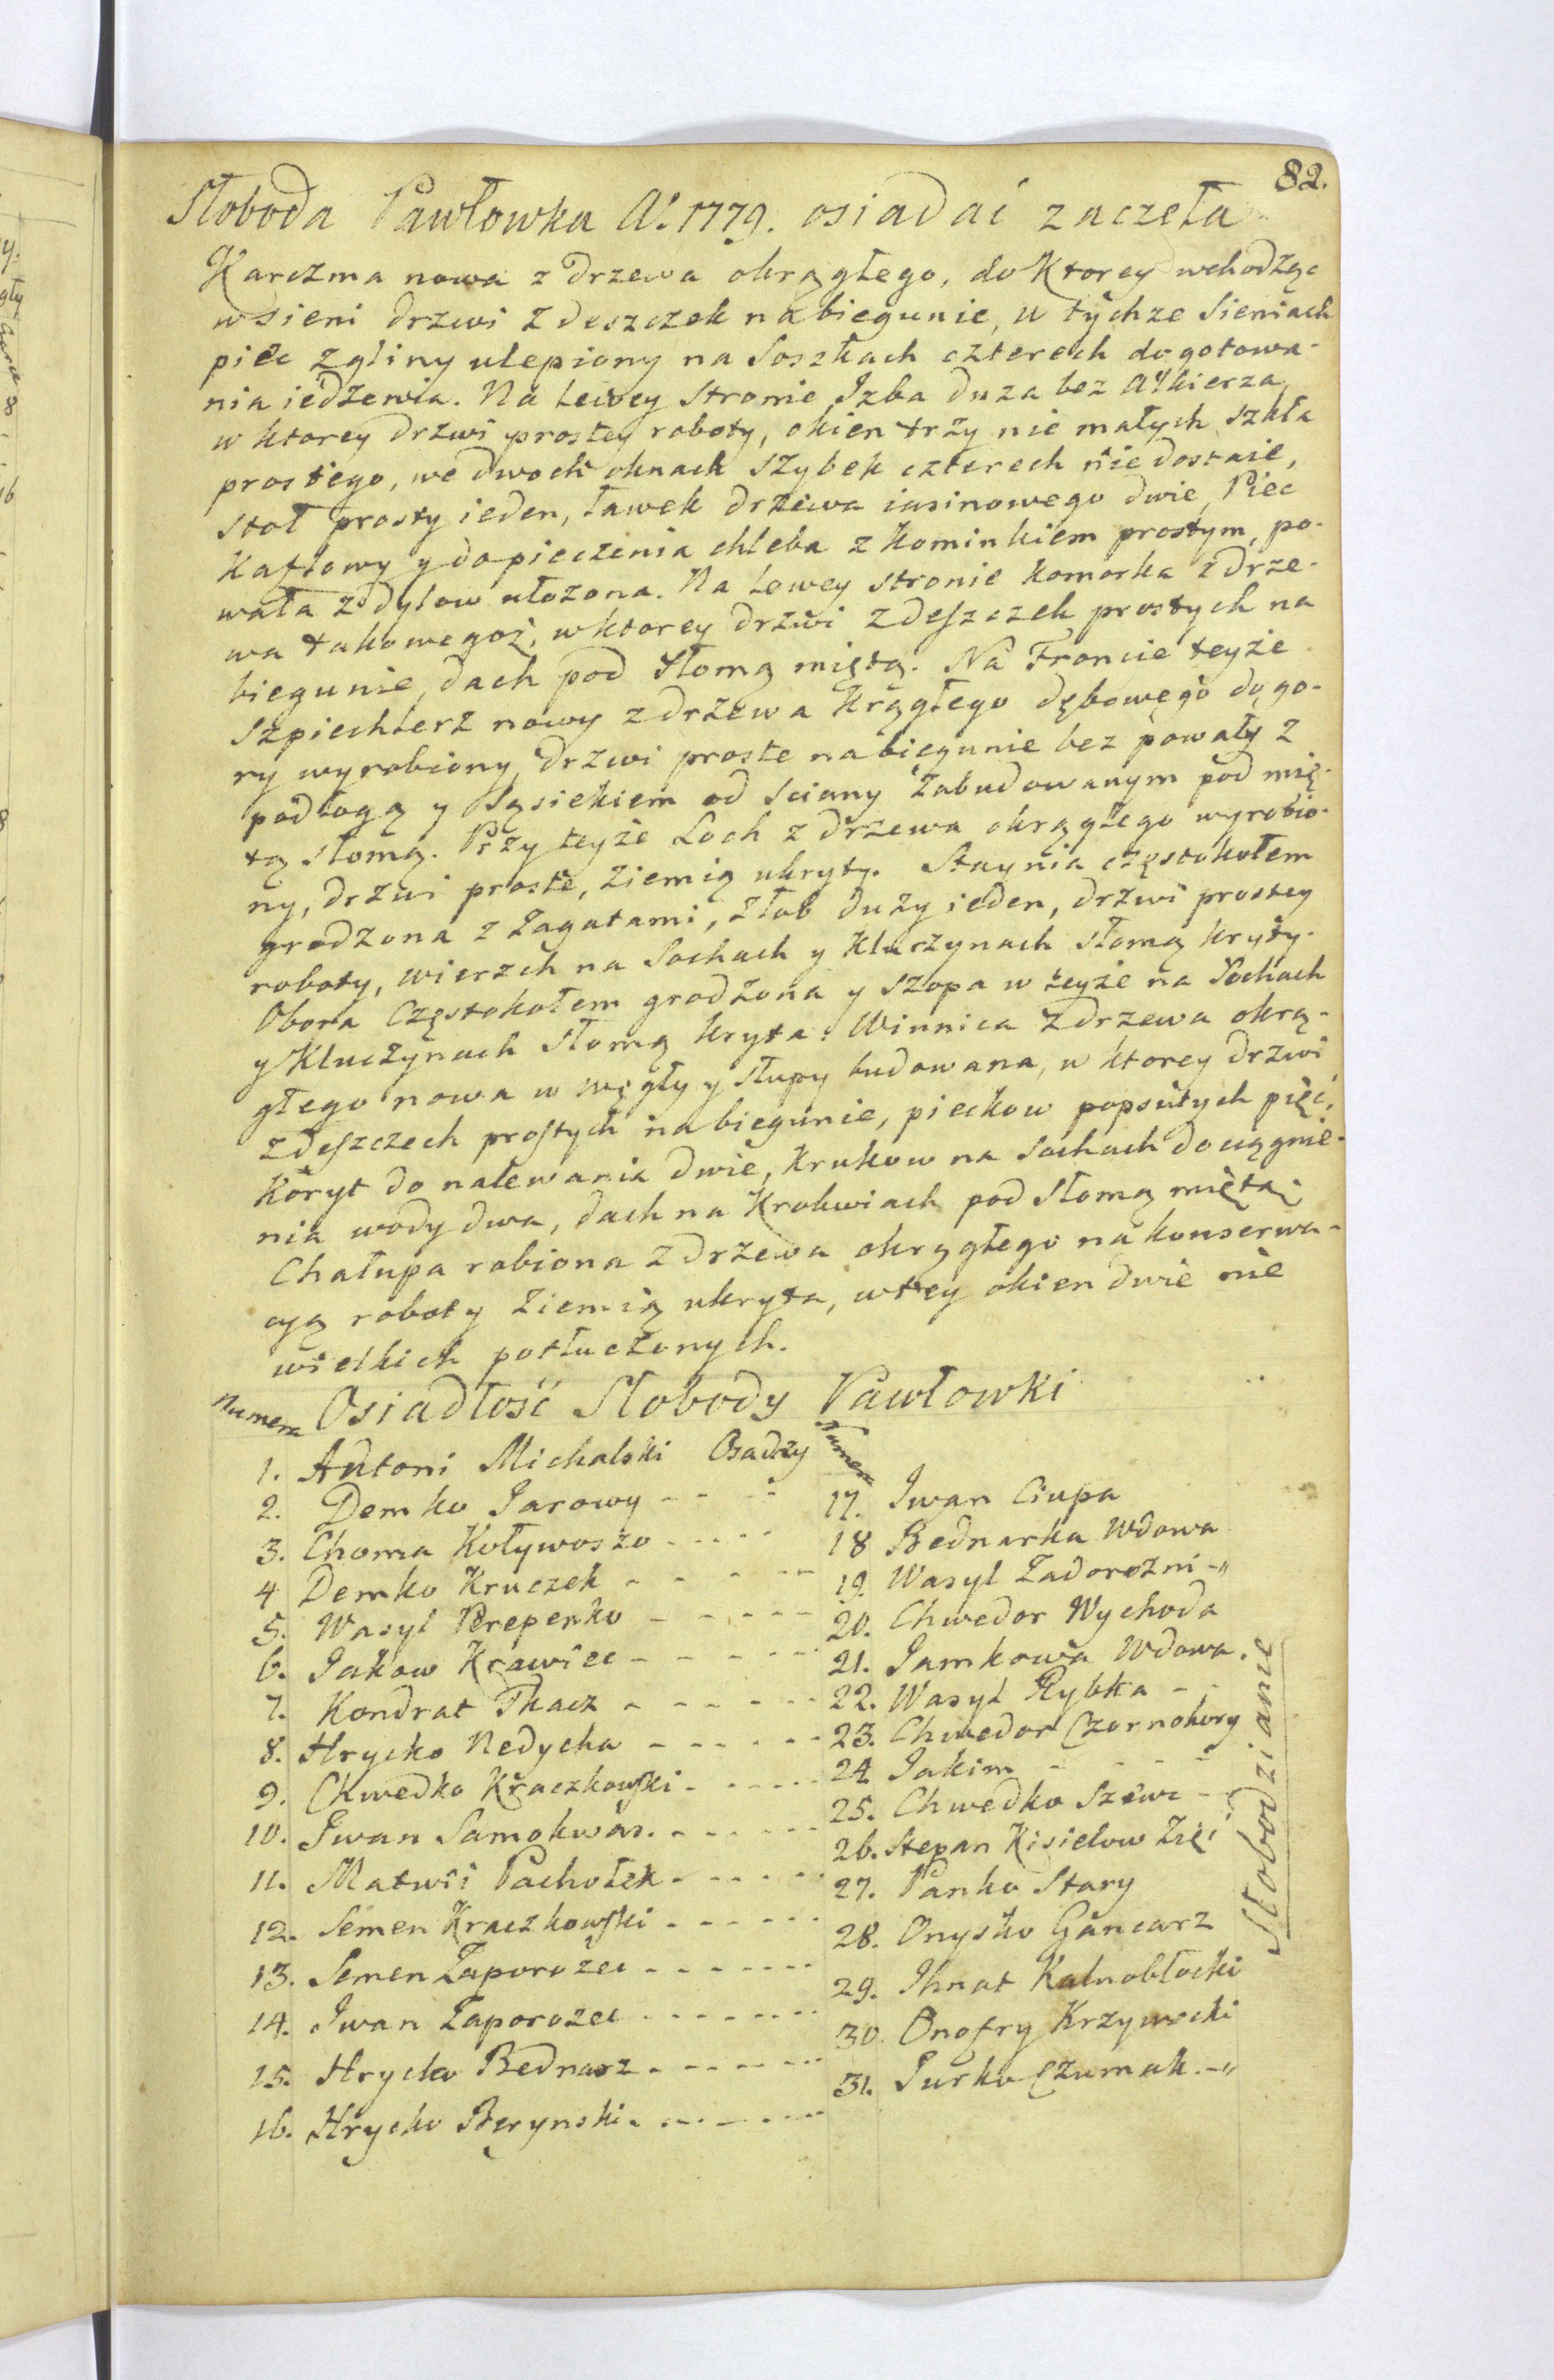 82.
Słoboda Pawłowka A. 1779. osiadać zaczeła
Karczma nowa z drzewa okrągłego, do Ktorey wchodząc
w sieni drzwi z deszczek na biegunie, w tychze Sieniach
piec z gliny ulepiony na Soszkach czterech do gotowa-
nia iedzenia. Na Lewey Stronie Izba duza bez Alkierza,
w ktorey drzwi prostey roboty, okien trzy nie małych szkła
prostego, we dwoch oknach szybek czterech nie dostaie,
stoł prosty ieden, ławek drzewa iasinowego dwie, Piec
Kaflowy y do pieczenia chleba z Kominkiem prostym, po-
wała z dylow ułozona. Na Lewey stronie komorka z drze-
wa takowegoż, w ktorey drzwi z deszczek prostych na
biegunie, dach pod Słomą miętą. Na Froncie teyże
Szpiechlerz nowy z drzewa krągłego dębowego do go-
ry wyrobiony, drzwi proste na biegunie bez powały z
podłogą y Sąsiekiem od Sciany Zabudowanym pod mię-
tą Słomą. Przy teyże Loch z drzewa okrągłego wyrobio-
ny, drzwi proste, ziemią ukryty. Staynia częstokołem
grodzona z Zagatami, Złob duży ieden, drzwi prostey
roboty, wierzch na Sochach y Kluczynach Słomą kryty.
Obora Częstokołem grodzona y szopa w teyże na Sochach
y Kluczynach Słomą kryta. Winnica z drzewa okrą-
głego nowa w węgły y słupy budowana, w ktorey drzwi
z deszczech prostych na biegunie, pieckow popsutych pięć,
Koryt do nalewania dwie, Krukow na Sochach do ciągnie-
nia wody dwa, dach na Krokwiach pod Słomą miętą.
Chałupa robiona z drzewa okrągłego na konserwa-
cyą roboty Ziemią ukryta, w tey okien dwie nie
wielkich potłuczonych.
Osiadłość Słobody Pawłowki
Numera
1. Antoni Michalski Osadzy
2. Demko Jarowy
3. Choma Koływoszo
4 Demko Kruczek
5. Wasyl Perepenko
6. Jakow Krawiec
7. Kondrat Tkacz
8. Hrycko Nedycha
9. Chwedko Kraczkowski
10. Iwan Samokwas.
11. Matwii Pachołek
12. Semen Kraczkowski
13. Semen Zaporożec
14. Iwan Zaporozec
15. Hrycko Bednarz
16. Hrycko Berynski
Numera
17. Iwan Ciupa
18 Bednarka Wdowa
19. Wasyl Zadorozni
20. Chwedor Wychoda
21. Jamkowa Wdowa.
22. Wasyl Rybka
23. Chwedor Czornohory
24 Jakim
25. Chwedko Szewc
26. Stepan Kisielow Zięć
27. Panko Stary
28. Onysko Gancarz
29. Ihnat Kalnobłocki
30. Onofry Krzywecki
31. Jurko Czumak.
Słobodzianie